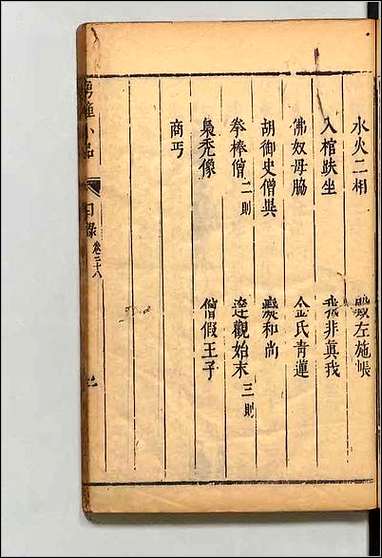 水火二相　殿左施帳
入棺趺坐　我非眞我
佛奴母脇　金氏青蓮
胡御史僧　癡和尚
拳棒僧二則　達觀始末三則
梟禿像　僧假王子
商丐
湧幢小品　目錄　卷二十八